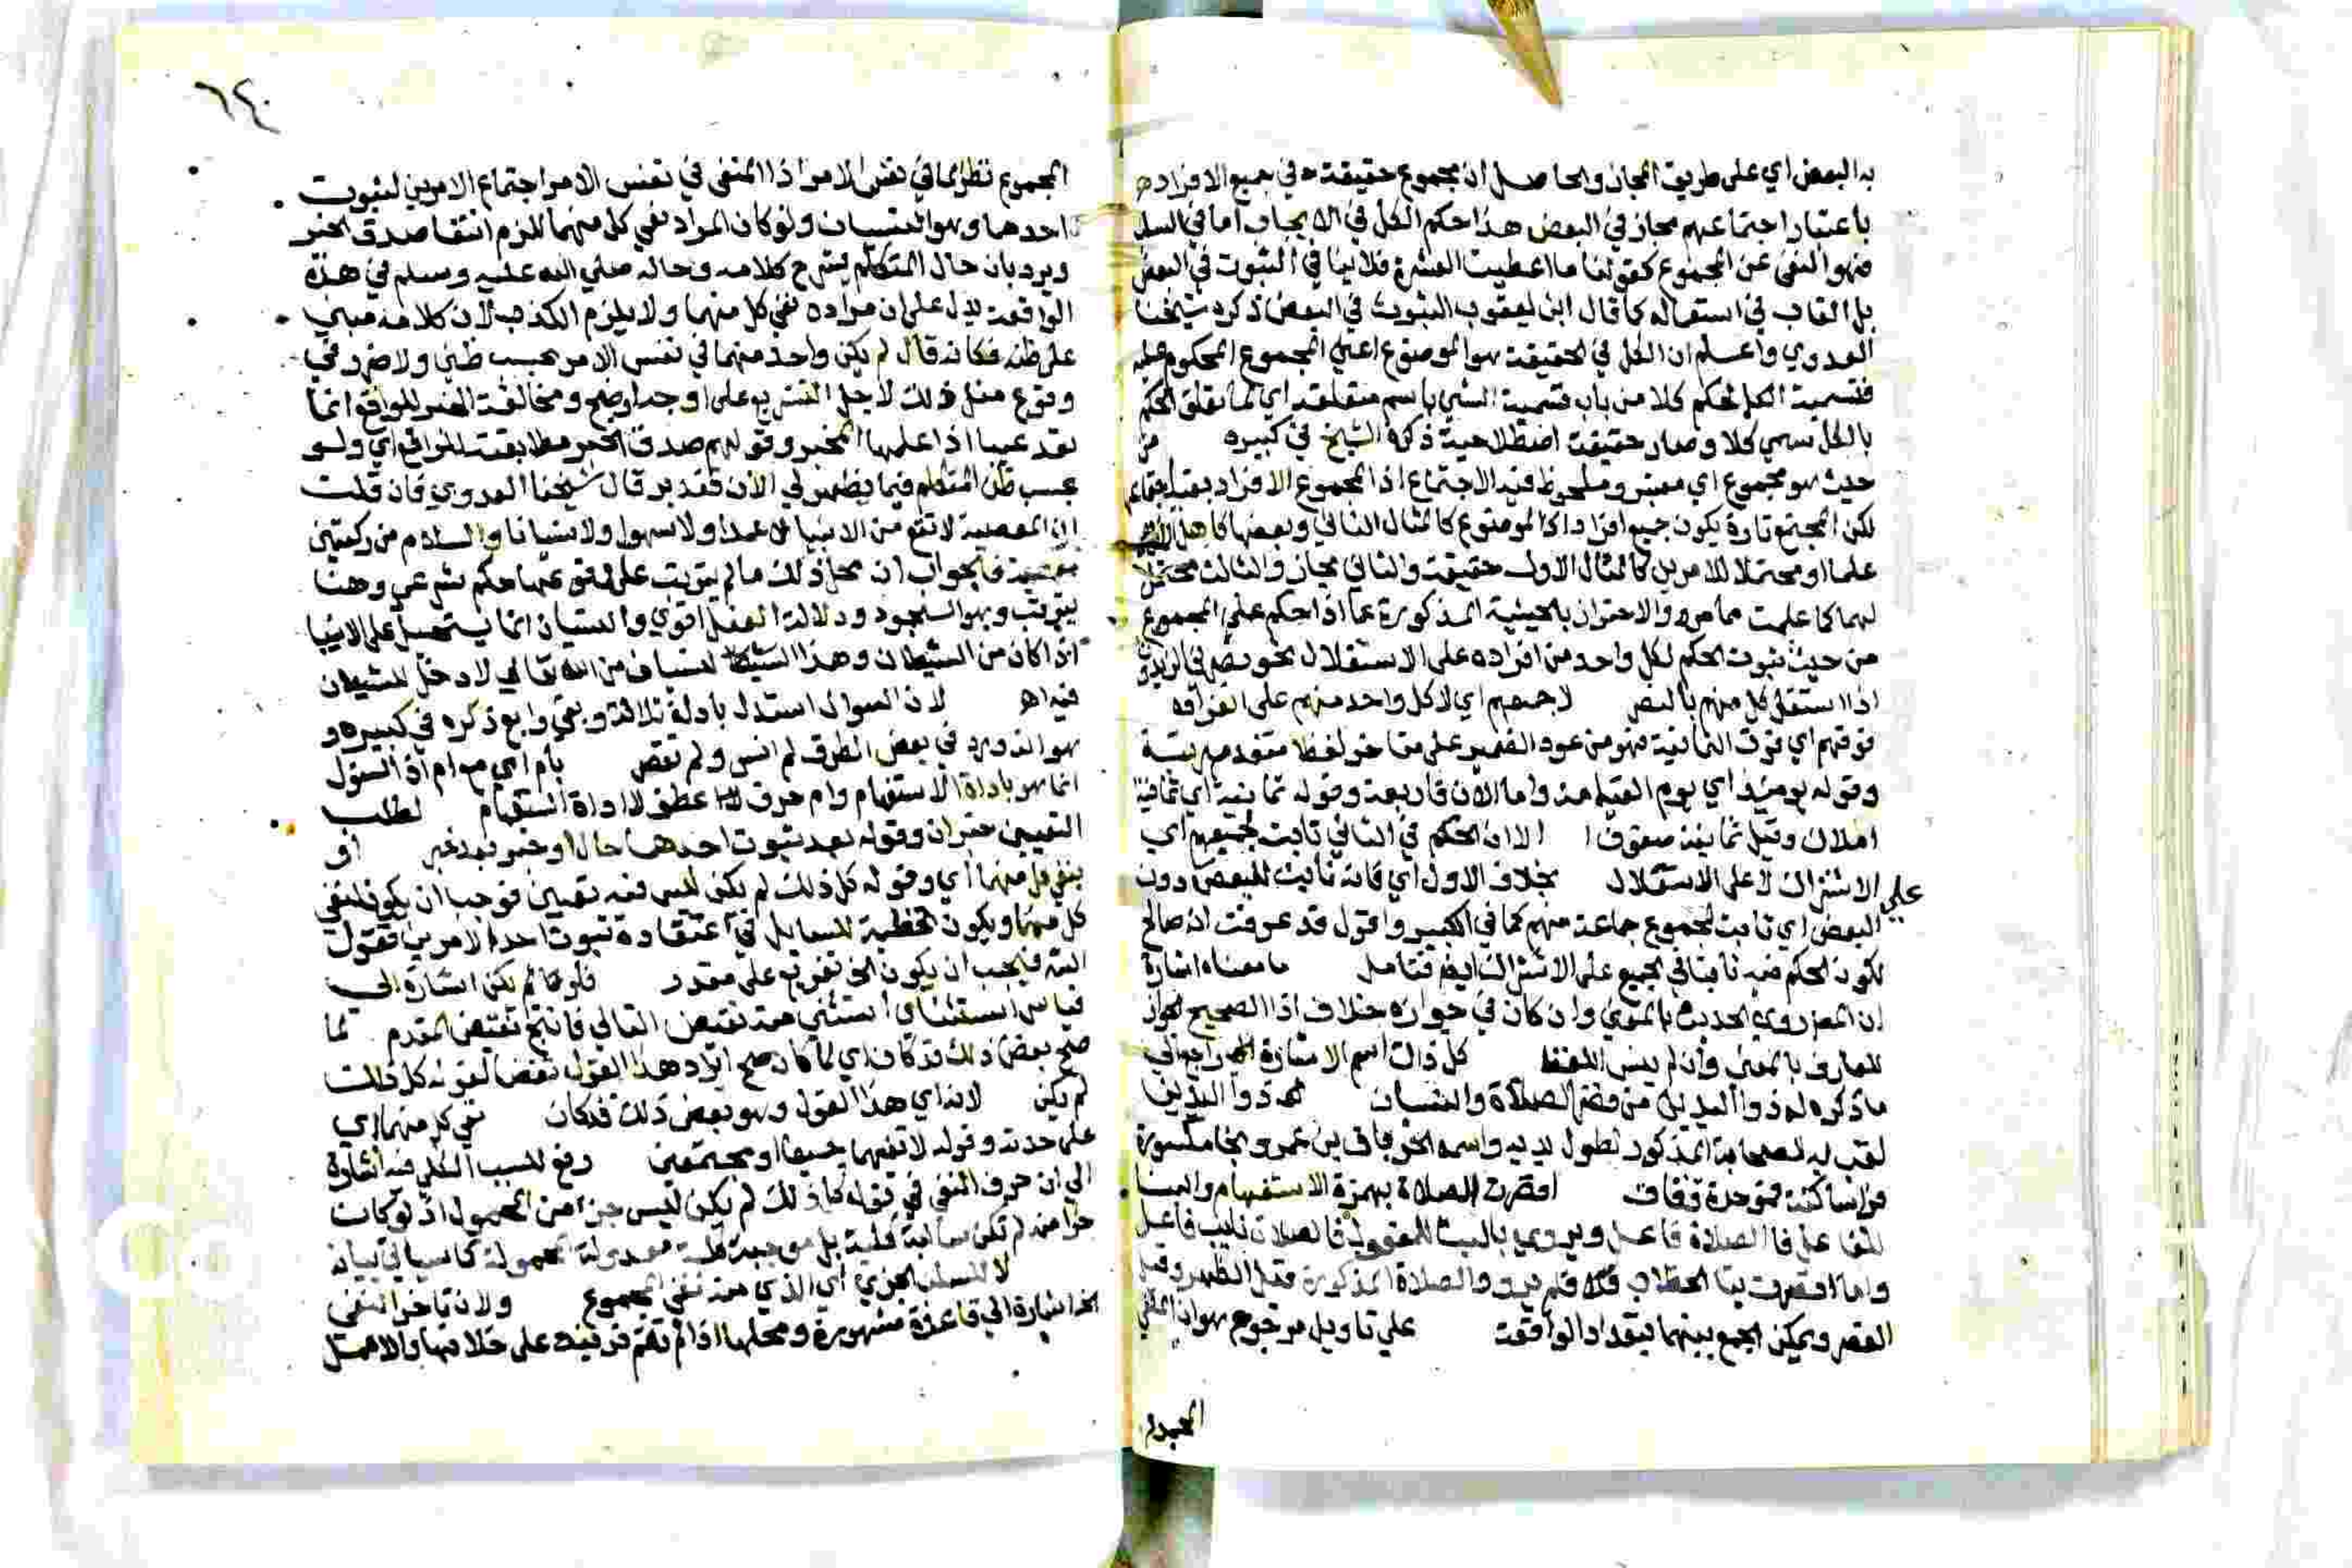 به البعض اي على طريق المجاز والحاصل ان مجموع حقيقته في جميع الافراد
باعتبار اجتماعهم مجاز في البعض هذا حكم الكل في الايجاب اما في السلب
فهو النفي عن المجموع كقولنا ما اعطيت العشرة فلا ينافي الثبوت في البعض
بل الغاب في استعماله كما قال ابن يعقوب الثبوت في البعض ذكره شيخنا
العدوي واعلم ان الكل في الحقيقة هو الموضوع اعني المجموع المحكوم عليه
فتسمية الكل لحكم كلا من باب تسمية الشي باسم متعلقه اي لما تعلق الحكم
بالكل سمي كلا وصار حقيقة اصطلاحية ذكره الشيخ في كبيره من
حيث هو مجموع اي معتبر وملحوظ فيه الاجتماع اذ المجموع الافراد بقيد
لكن المجتمع تارة يكون جميع افراد اذ الموضوع كالمثال الثاني وبعضها كاهل
علما او محتملا للامرين كالمثال الاول حقيقة والثاني مجاز والثالث محتمل
لهما كما علمت مما مر والاحتراز بالحيثية المذكورة عما اذا حكم على المجموع
من حيث ثبوت الحكم لكل واحد من افراده على الاستقلال نحو
اذا استقل كل منهم بالنص لاجمعهم اي لا كل واحد منهم على انفراده
فوقهم اي فوق الثمانية فهو من عود الضمير على متاخر لفظا متقدم رتبة
وقوله يومئذ اي يوم القيامة واما الان فاربعة وقوله ثمانية اي ثمانية
املاك وقيل ثمانية صفوف الا ان الحكم في الثاني ثابت لجميعهم اي
على الاشتراك لا على الاستقلال بخلاف الاول اي فانه ثابت للبعض دون
البعض اي ثابت لمجموع جماعة منهم كما في الكبير واقول قد عرفت انه صالح
لكون الحكم فيه ثابتا في الجميع على الاشتراك ايضا فتامل ما معناه اشارة
ان المص روى الحديث بالمعنى وان كان في جوازه خلاف اذ الصحيح الجواز
للعارف بالمعنى وان لم ينس اللفظ كل ذلك اسم الاشارة راجع الى
ما ذكره له ذو اليدين من قصر الصلاة والنسيان ذو اليدين
لقب به الصحابة المذكور لطول يديه واسمه الخرباق بن عمرو بخا مكسورة
فرا ساكنة فموحدة فقاف اقصرت الصلاة بهمزة الاستفهام والبنا
للفاعل فالصلاة فاعل ويروى بالبنا للمفعول فالصلاة نايب فاعل
واما اقصرت بتا الخطاب فلم يرو والصلاة المذكورة قيل الظهر وقيل
العصر ويمكن الجمع بينهما بتعداد الواقعة على تاويل مرجوح هو ان
المجموع
٦٤
المجموع نظرا لما في نفس الامر اذ المنفي في نفس الامر اجتماع الامرين لثبوت
احدهما وهو النسيان ولو كان المراد نفي كل منهما للزم انتفا صدق الخبر
ويرد بان حال المتكلم يشرح كلامه وحاله صلى الله عليه وسلم في هذه
الواقعة يدل على ان مراده نفي كل منهما ولا يلزم الكذب لان كلامه مبني
على ظنه فكانه قال لم يكن واحد منهما في نفس الامر بحسب ظني ولا ضرر في
وقوع مثل ذلك لاجل التشريع على اوجه اوضح ومخالفة الخبر للواقع انما
تعد عيبا اذا علمها المخبر وقولهم صدق الخبر مطابقته للواقع اي ولو
بحسب ظن المتكلم فيما يظهر لي الان فتدبر قال شيخنا العدوي فان قلت
ان المعصية لا تقع من الانبيا لا عمدا ولا سهوا ولا نسيانا والسلام من ركعتين
معصية فالجواب ان محل ذلك ما لم يترتب على وقوعها حكم شرعي وهنا
يترتب وهو السجود ودلالة الفعل اقوى والنسيان انما يستحيل على الانبيا
اذا كان من الشيطان وهذا النسيان من الله تعالى لا دخل للشيطان
فيه اه لان السوال استدل بادلة ثلاثة وبقي رابع ذكره في كبيره و
هو انه ورد في بعض الطرق لم انس ولم تقصر بام اي مع ام اذ السؤل
انما هو باداة الاستفهام وام حرف عطف لا اداة استفهام لطلب
التعيين خبر ان وقوله بعد ثبوت احدهما حال او خبر بعد خبر او
بنفي كل منهما اي وقوله كل ذلك لم يكن ليس فيه تعيين فوجب ان يكون لنفي
كل منهما ويكون تخطية للسايل في اعتقاده ثبوت احد الامرين فقول
الشه فيجب ان يكون الخ تفريع على مقدر فلو لم يكن اشارة الى
قياس استثناي استثني فيه نقيض التالي فانتج نقيض المقدم لما
صح بعض ذلك قد كان اي لما كان صح ايراد هذا القول نقضا لقوله كل ذلك
لم يكن لانه اي هذا القول وهو بعض ذلك قد كان نفي كل منهما اي
على حدته وقوله لا نفيهما جميعا او مجتمعين رفع للسبب الكلي فيه اشارة
الى ان حرف النفي في قوله كل ذلك لم يكن ليس جزا من المحمول اذ لو كان
جزا منه لم تكن سالبة كلية بل موجبة كلية معدولة المحمول كما سياتي بيانه
لا للسلب الجزي اي الذي فيه نفي المجموع ولان تاخر النفي
الخ اشارة الى قاعدة مشهورة ومحلها اذا لم تقم قرينة على خلافها والا عمل